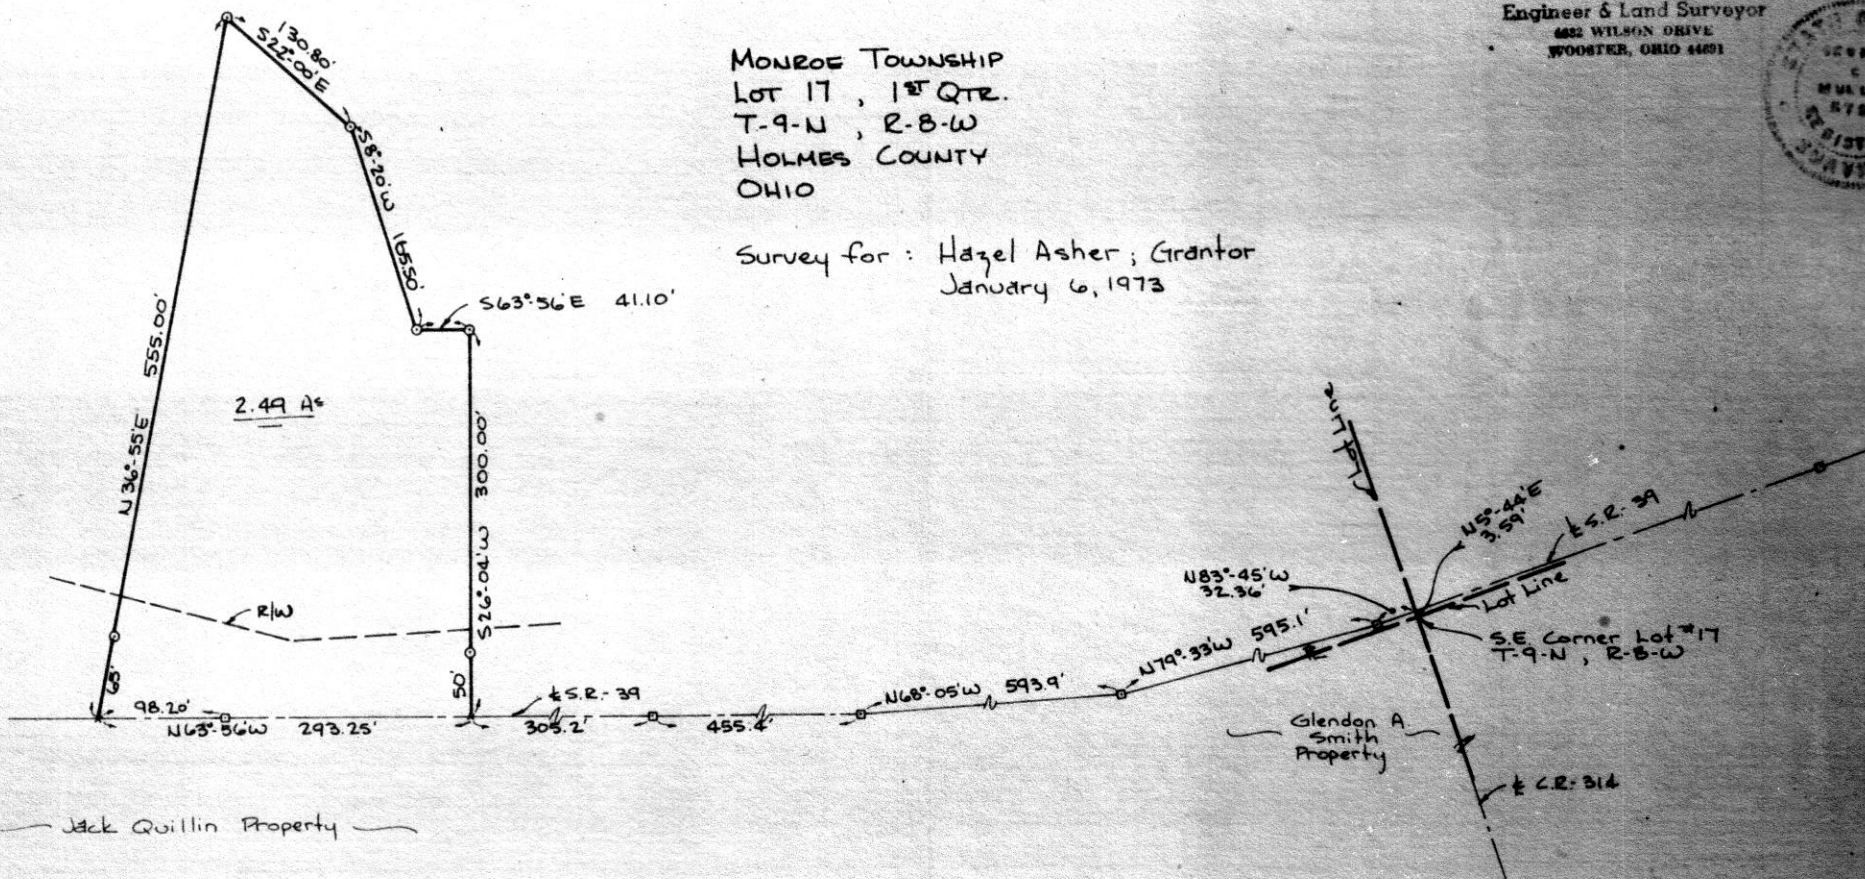 Engineer & Land Surveyor
WILSON DRIVE
WOOSTER, OHIO 44691
MONROE TOWNSHIP
LOT 17 , 1ST QTR.
T-9-N , R-8-W
HOLMES COUNTY
OHIO
Survey for : Hazel Asher ; Grantor
January 6, 1973
130.80'
S22°-00'E
S8°-20'W 165.50'
S63°-56'E 41.10'
N36°-55'E 555.00'
2.49 Ac
300.00'
S26°-04'W
R/W
65'
50'
98.20'
N63°-56'W 293.25'
℄ S.R.-39
305.2'
455.4'
N68°-05'W 593.9'
N79°-33'W 595.1'
N83°-45'W
32.36'
Lot Line
N5°-44'E
3.59'
℄ S.R.-39
Lot Line
S.E. Corner Lot #17
T-9-N , R-8-W
Glendon A.
Smith
Property
℄ C.R.-314
Jack Quillin Property